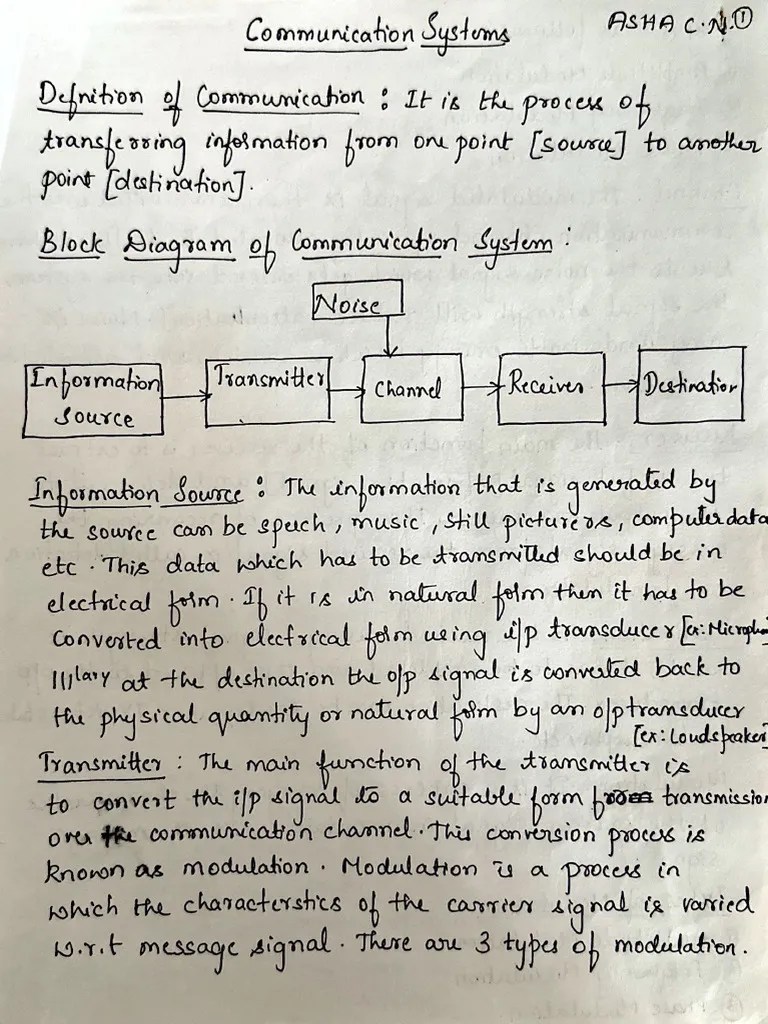 Communication Systems
ASHA C.N. ①
Defnition of Communication : It is the process of
transferring information from one point [source] to another
point [destination].
Block Diagram of Communication System :
Noise
Information Source
Transmitter
Channel
Receiver
Destination
Information Source : The information that is generated by
the source can be speech, music, still pictures, computer data
etc. This data which has to be transmitted should be in
electrical form. If it is in natural form then it has to be
converted into electrical form using i/p transducer [ex: Micropho
|||lary at the destination the o/p signal is converted back to
the physical quantity or natural form by an o/p transducer
[ex: Loudspeaker]
Transmitter : The main function of the transmitter is
to convert the i/p signal to a suitable form transmission
over the communication channel. This conversion process is
known as modulation. Modulation is a process in
which the characterstics of the carrier signal is varied
w.r.t message signal. There are 3 types of modulation.